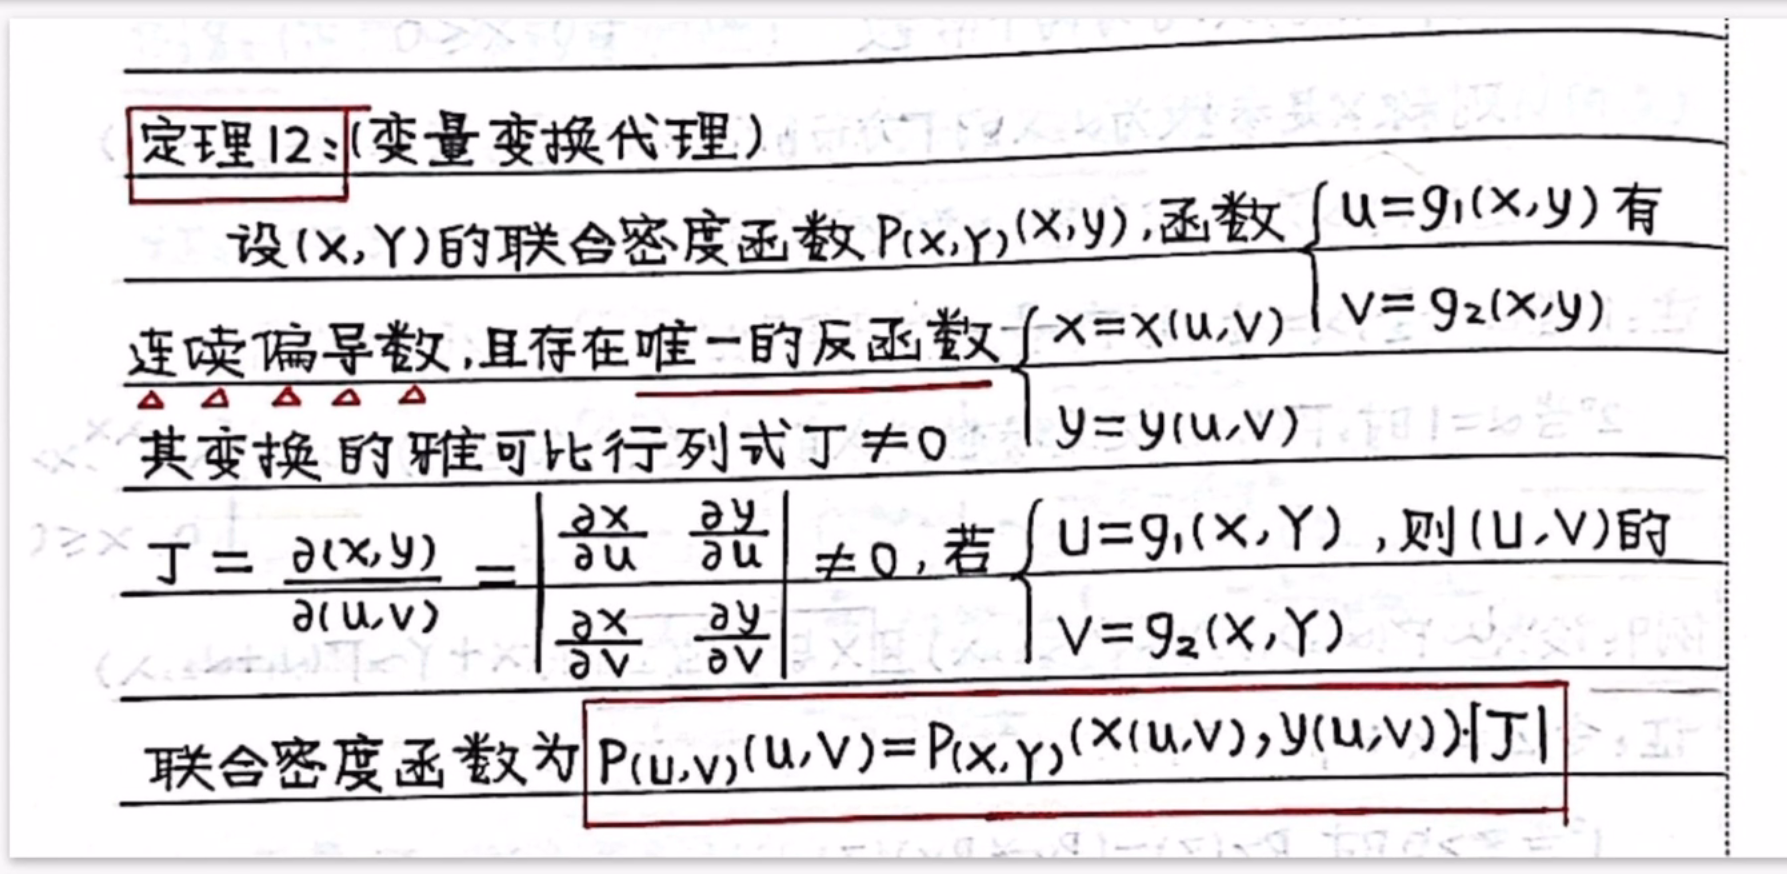 定理12:(变量变换代理)
设(X,Y)的联合密度函数P(X,Y)(x,y),函数{u=g₁(x,y)有
v=g₂(x,y)
连续偏导数,且存在唯一的反函数{x=x(u,v)
y=y(u,v)
其变换的雅可比行列式J≠0
J=∂(x,y)/∂(u,v)=|∂x/∂u ∂y/∂u; ∂x/∂v ∂y/∂v|≠0,若{U=g₁(X,Y),则(U,V)的
V=g₂(X,Y)
联合密度函数为P(U,V)(u,v)=P(X,Y)(x(u,v),y(u,v))·|J|